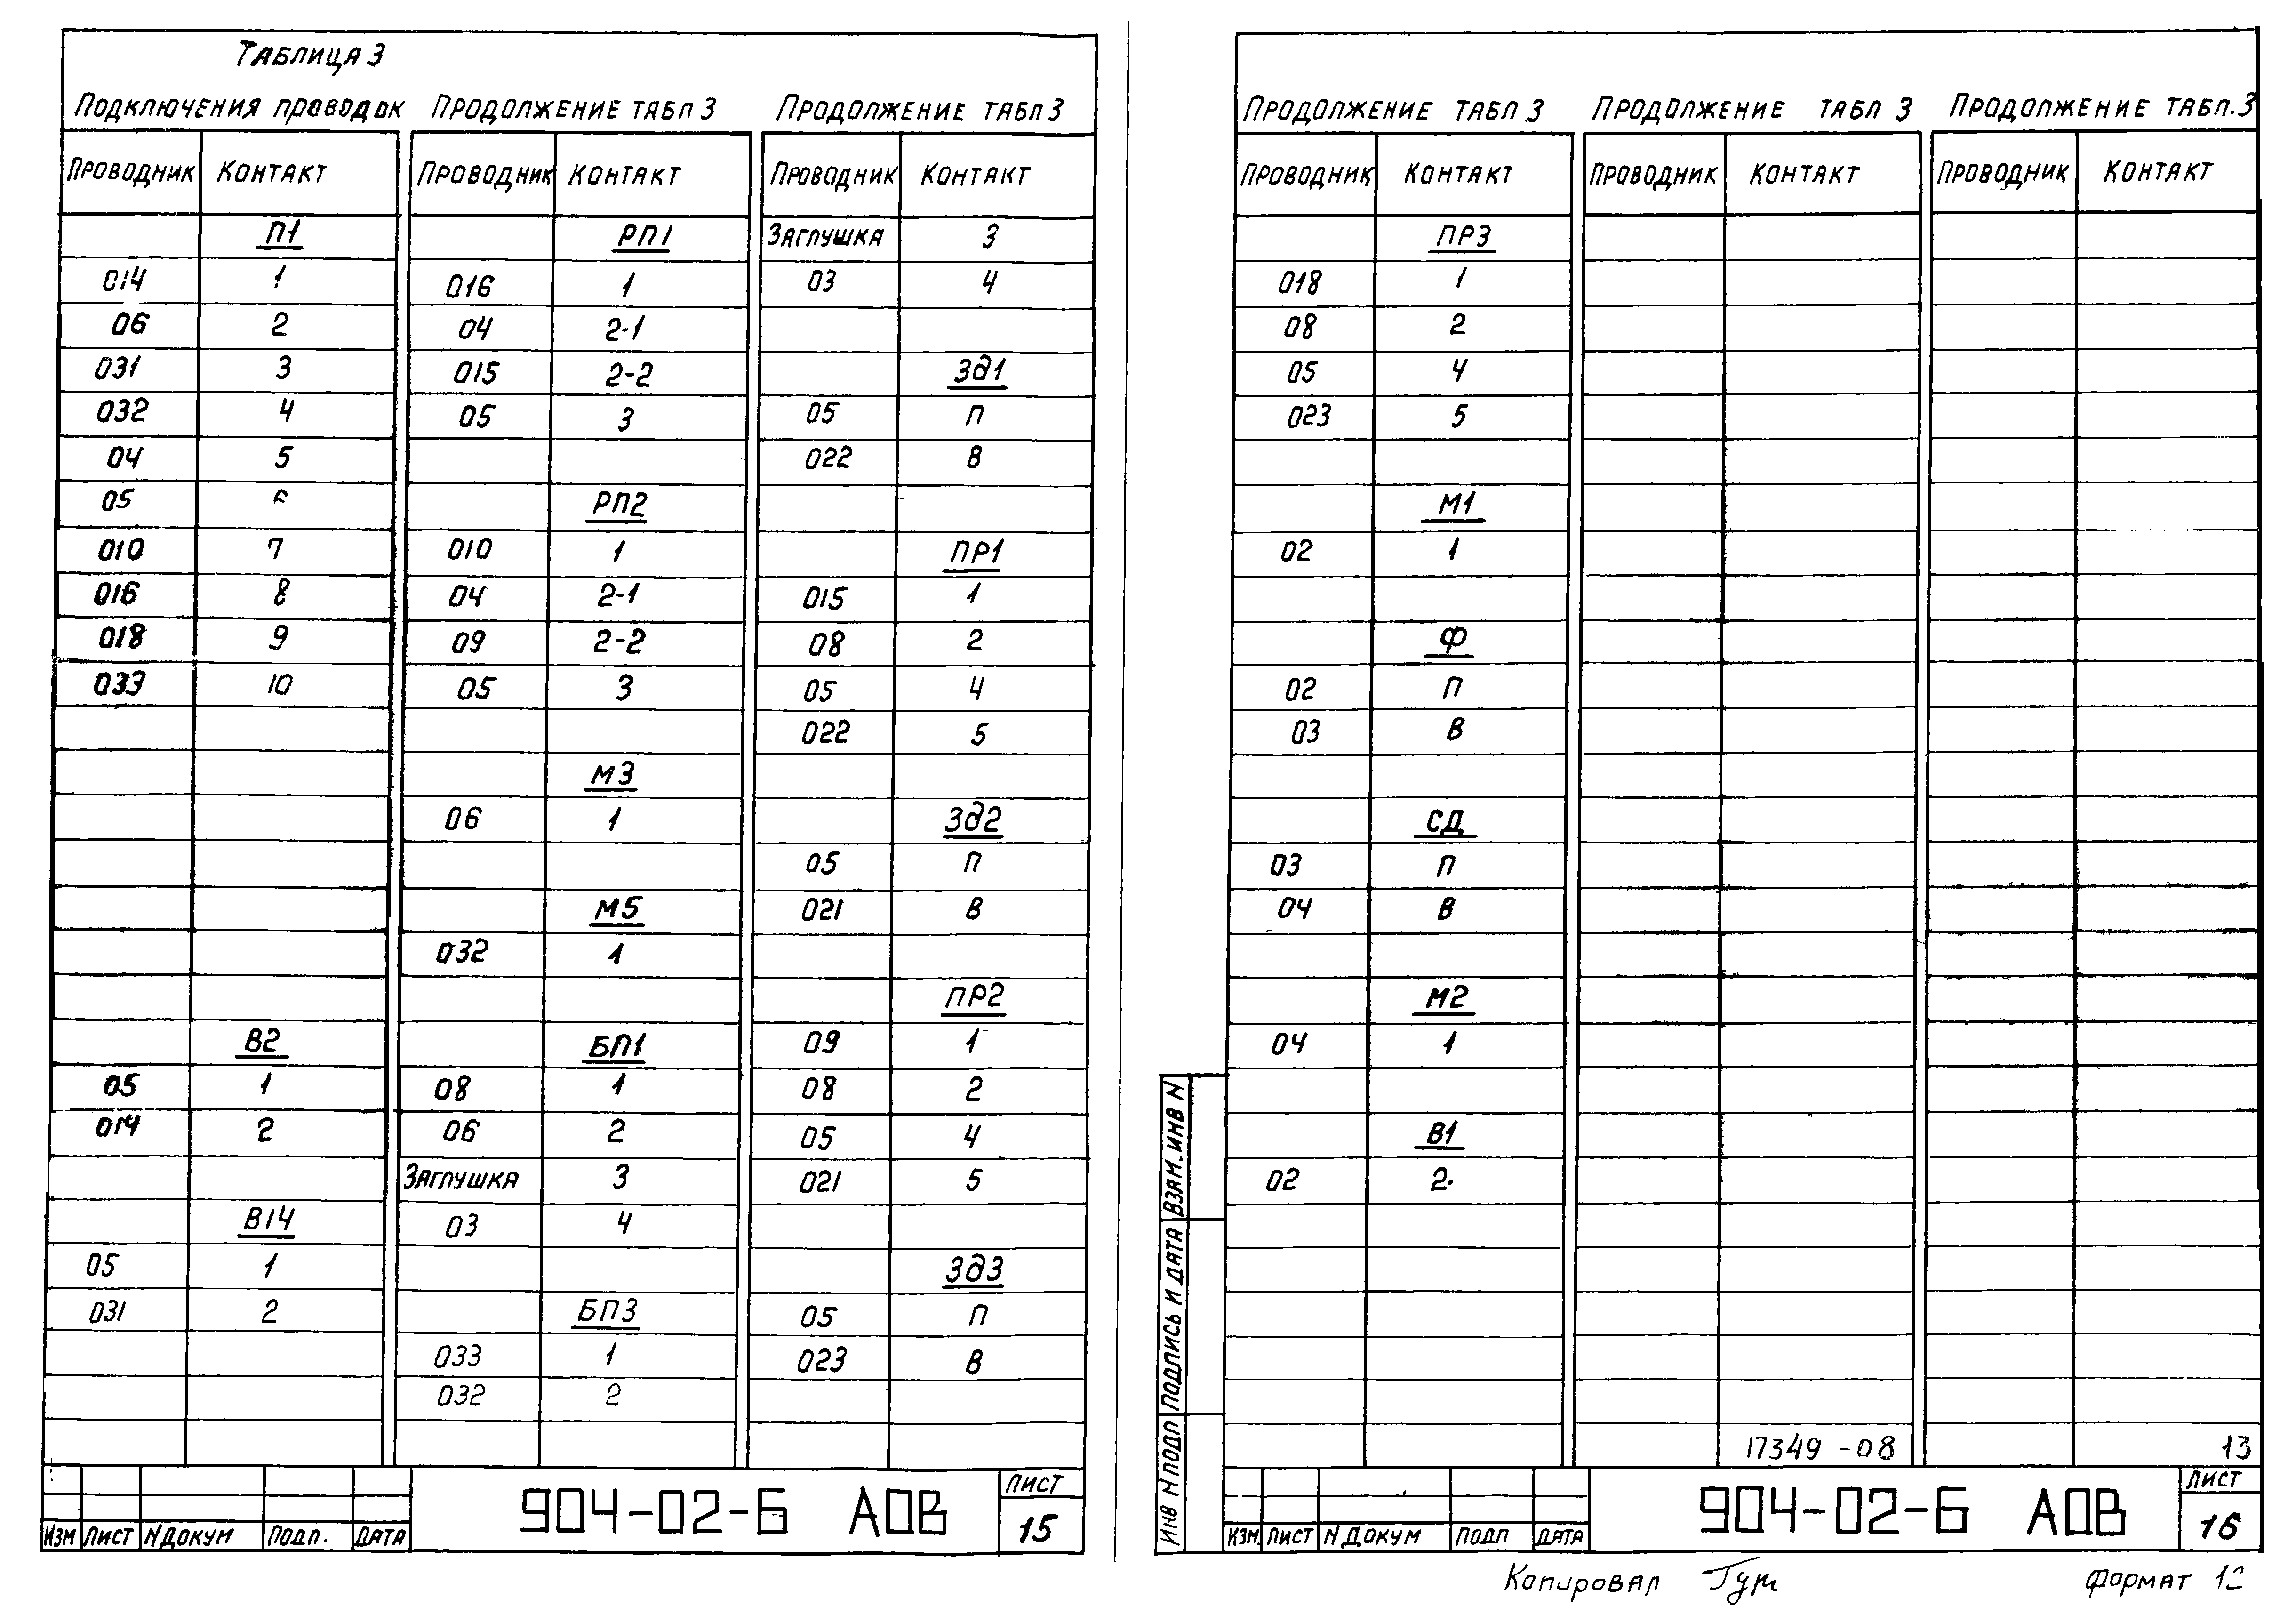 Таблица 3
Подключения проводок
Проводник Контакт
П1
014 1
06 2
031 3
032 4
04 5
05 6
010 7
016 8
018 9
033 10
В2
05 1
014 2
В14
05 1
031 2
Продолжение табл 3
Проводник Контакт
РП1
016 1
04 2-1
015 2-2
05 3
РП2
010 1
04 2-1
09 2-2
05 3
М3
06 1
М5
032 1
БП1
08 1
06 2
Заглушка 3
03 4
БП3
033 1
032 2
Продолжение табл 3
Проводник Контакт
Заглушка 3
03 4
Зд1
05 П
022 В
ПР1
015 1
08 2
05 4
022 5
Зд2
05 П
021 В
ПР2
09 1
08 2
05 4
021 5
Зд3
05 П
023 В
Изм Лист N докум Подп. Дата
904-02-6 АОВ
Лист
15
Продолжение табл 3
Проводник Контакт
ПР3
018 1
08 2
05 4
023 5
М1
02 1
Ф
02 П
03 В
СД
03 П
04 В
М2
04 1
В1
02 2.
Продолжение табл 3
Проводник Контакт
17349-08
Продолжение табл. 3
Проводник Контакт
13
Взам. инв N
Подпись и дата
Инв N подл
Изм. Лист N докум Подп Дата
904-02-6 АОВ
Лист
16
Копировал
Формат 12